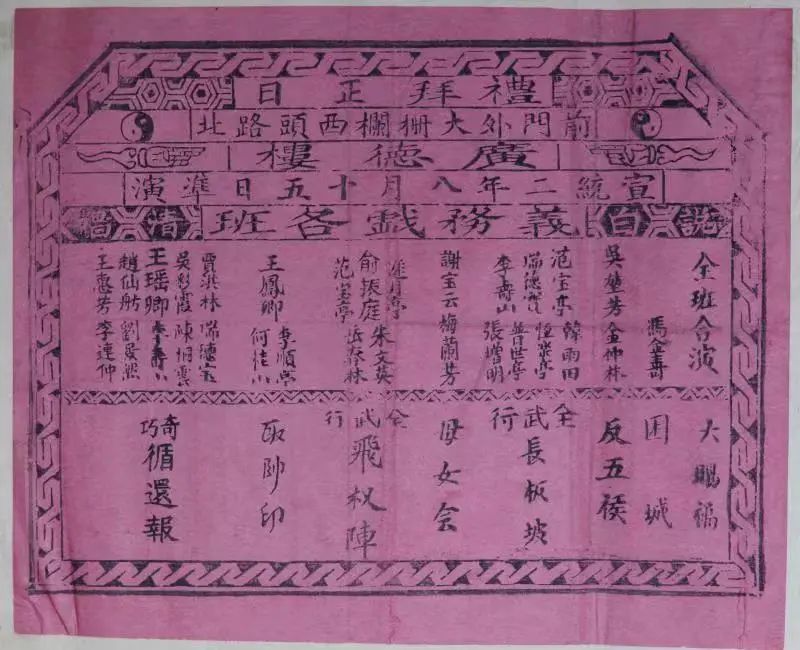 禮拜正日
前門外大柵欄西頭路北
廣德樓
宣統二年八月十五日準演
說白義務戯各班清唱
全班合演
馮金壽
吳 芳 金仲林
范宝亭 韓雨田
瑞德寶
李壽山 普世亭
張增明
謝宝云 梅蘭芳
遲月亭 朱文英
俞振庭 岳春林
范宝亭
王鳳卿 李順亭
何桂山
賈洪林 瑞德宝
吳彩霞 陳桐雲
王瑶卿 李壽山
趙仙舫 劉景然
王蕙芳 李連仲
大賜福
困城
反五侯
全武行 長板坡
母女会
全武行 飛杈陣
取帥印
奇巧 循還報